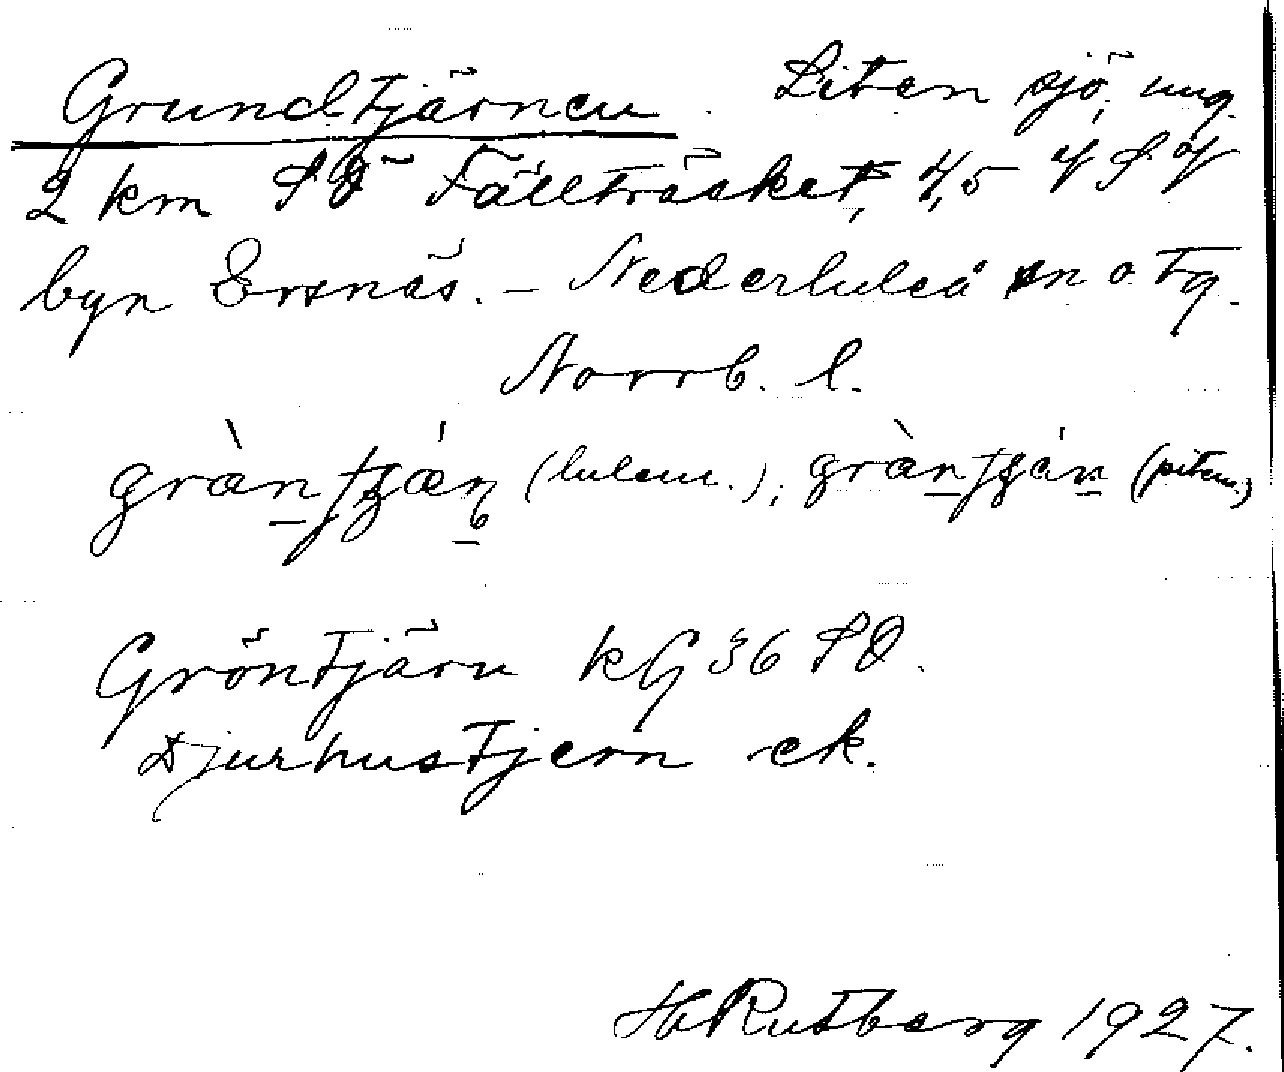 Grundtjärnen. Liten sjö, ung.
2 km SV Fällträsket, 4,5 " S of
byn Ersnäs. – Nederluleå sn o tg.
Norrb. l.
(lulem.); (pitem.)
Gröntjärn kG 36 SO.
Djurhustjern ek.
H Rutberg 1927.